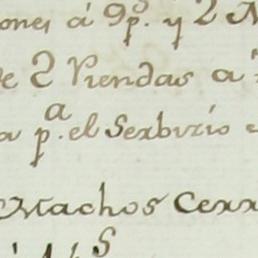 ones á 9p.s y 2 M
de 2 Riendas a
a p.a el Serbicio
Machos Cerr